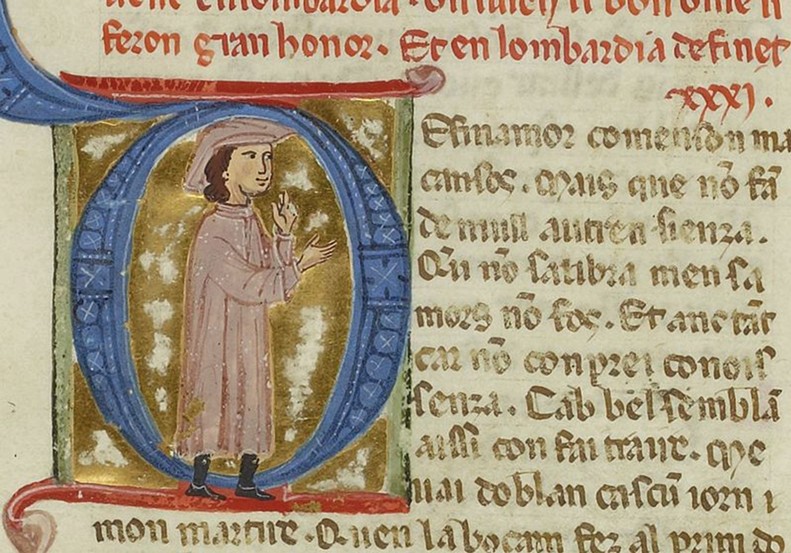 en lombardia. on li bon ome li
feron gran honor. Et en lombardia definet
xxxi.
Esin amor comenson ma
cansos. Mais que nō fā
de nuill autren sienza.
Qu nō saubra men sa
mors nō fos. Et anc tāt
car nō conprei conois
senza. Cab bel semblā
aissi con fai traire. Que
mai doblan cascū iorn i
mon martire. Q. uen la bocam fez al prim do